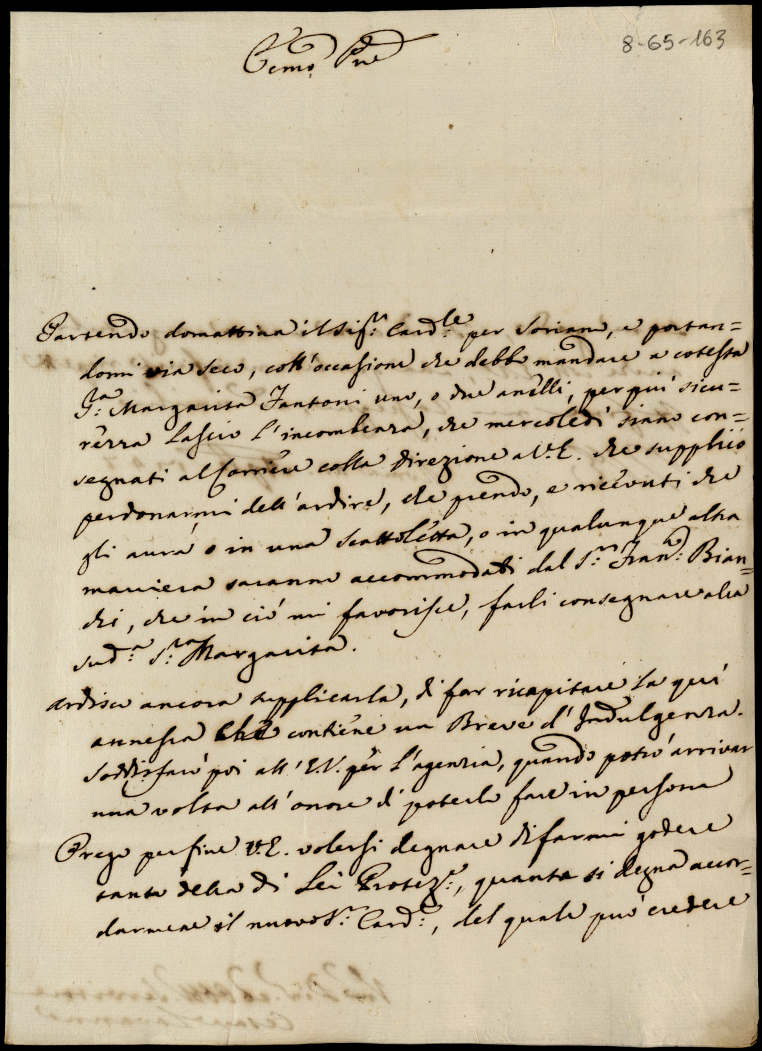 8-65-163
Ecmo. Pne
Partendo domattina il Sigr: Cardle per Soriano, e portan=
domi via seco, coll'occasione che debbo mandare a cotesta
Sa: Margarita Fantoni uno, o due anelli, per più sicu=
rezza lascio l'incombenza, che mercoledì siano con=
segnati al Corriere colla direzione a V.E. che supplico
perdonarmi dell'ardire, che prendo, e ricevuti che
gli aurà o in una scattoletta, o in qualunque altra
maniera saranno accommodati dal Sr: Franco: Bian=
chi, che in ciò mi favorisce, farli consegnare alla
sudda: Sra: Margarita.
Ardisco ancora supplicarla, di far ricapitare la quì
annessa che contiene un Breve d'Indulgenza.
Soddisfarò poi all'E.V. per l'agenzia, quando potrò arrivar
una volta all'onore di poterlo fare in persona
Prego per fine V.E. volersi degnare di farmi godere
tanto della di Lei Protezne:, quanto si degna accor=
darmene il nuovo Sr: Carde:, del quale può credere